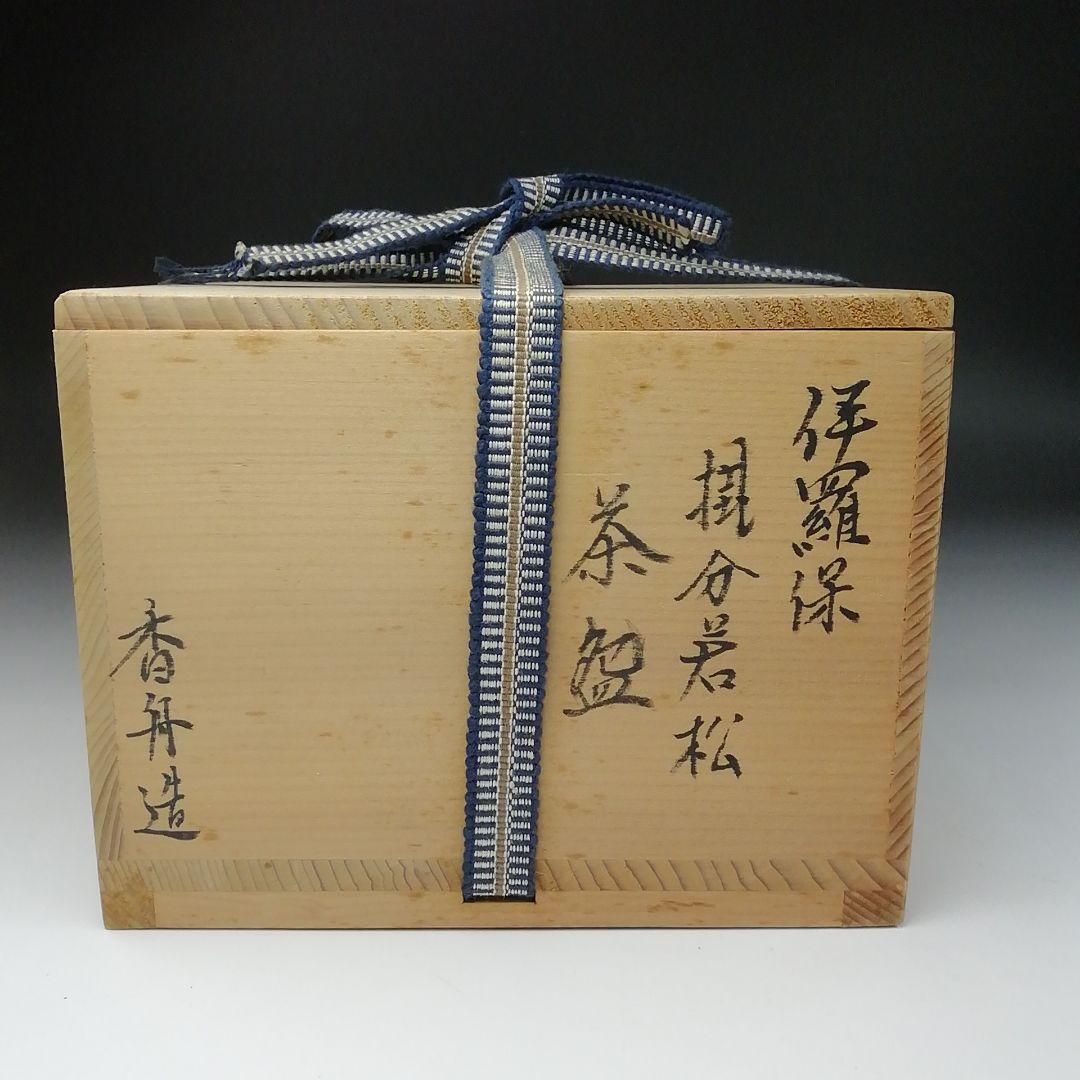 伊羅保
掛分若松
茶盌
香舟造